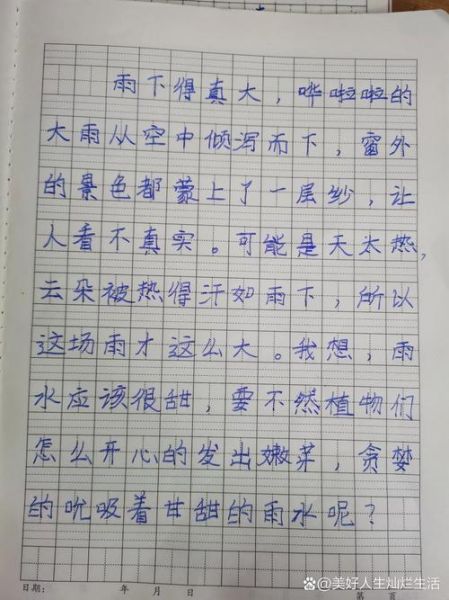 雨下得真大，哗啦啦的
大雨从空中倾泻而下，窗外
的景色都蒙上了一层纱，让
人看不真实。可能是天太热，
云朵被热得汗如雨下，所以
这场雨才这么大。我想，雨
水应该很甜，要不然植物们
怎么开心的发出嫩芽，贪婪
的吮吸着甘甜的雨水呢？
日期： 年 月 日 第 页
@美好人生灿烂生活